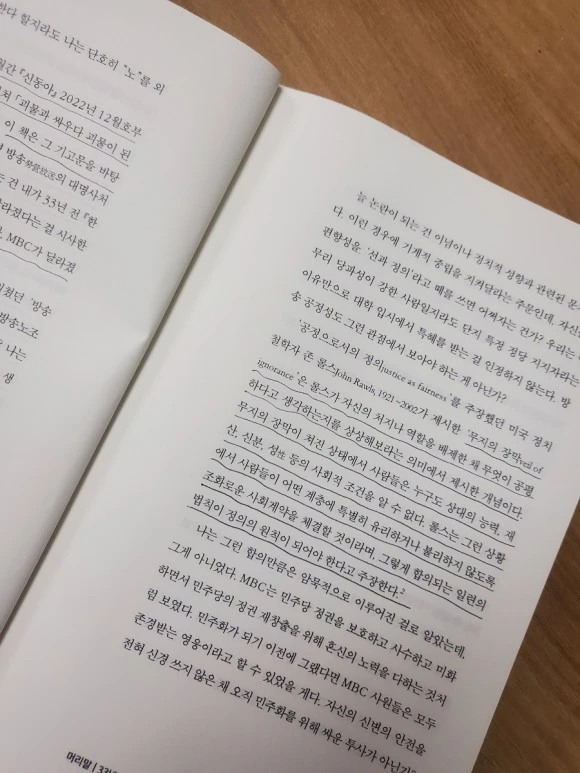 한다 할지라도 나는 단호히 "노"를 외
월간 『신동아』 2022년 12월호부
「괴물과 싸우다 괴물이 된
이 책은 그 기고문을 바탕
방송勞營放送의 대명사처
는 건 내가 33년 전 『한
달라졌다는 걸 시사한
MBC가 달라졌
미쳤던 '방송
방송노조
은 나는
생
늘 논란이 되는 건 이념이나 정치적 성향과 관련된 문
다. 이런 경우에 기계적 중립을 지켜달라는 주문인데, 자신
편향성을 '선과 정의'라고 떼를 쓰면 어쩌자는 건가? 우리는
무리 당파성이 강한 사람일지라도 단지 특정 정당 지지자라는
이유만으로 대학 입시에서 특혜를 받는 걸 인정하지 않는다. 방
송 공정성도 그런 관점에서 보아야 하는 게 아닌가?
'공정으로서의 정의justice as fairness'를 주장했던 미국 정치
철학자 존 롤스John Rawls, 1921~2002가 제시한 '무지의 장막veil of
ignorance'은 롤스가 자신의 처지나 역할을 배제한 채 무엇이 공평
하다고 생각하는지를 상상해보라는 의미에서 제시한 개념이다.
무지의 장막이 쳐진 상태에서 사람들은 누구도 상대의 능력, 재
산, 신분, 성性 등의 사회적 조건을 알 수 없다. 롤스는 그런 상황
에서 사람들이 어떤 계층에 특별히 유리하거나 불리하지 않도록
조화로운 사회계약을 체결할 것이라며, 그렇게 합의되는 일련의
법칙이 정의의 원칙이 되어야 한다고 주장한다.2
나는 그런 합의만큼은 암묵적으로 이루어진 걸로 알았는데,
그게 아니었다. MBC는 민주당 정권을 보호하고 사수하고 미화
하면서 민주당의 정권 재창출을 위해 혼신의 노력을 다하는 것처
럼 보였다. 민주화가 되기 이전에 그랬다면 MBC 사원들은 모두
존경받는 영웅이라고 할 수 있었을 게다. 자신의 신변의 안전을
전혀 신경 쓰지 않은 채 오직 민주화를 위해 싸운 투사가 아닌가?
머리말 | 33